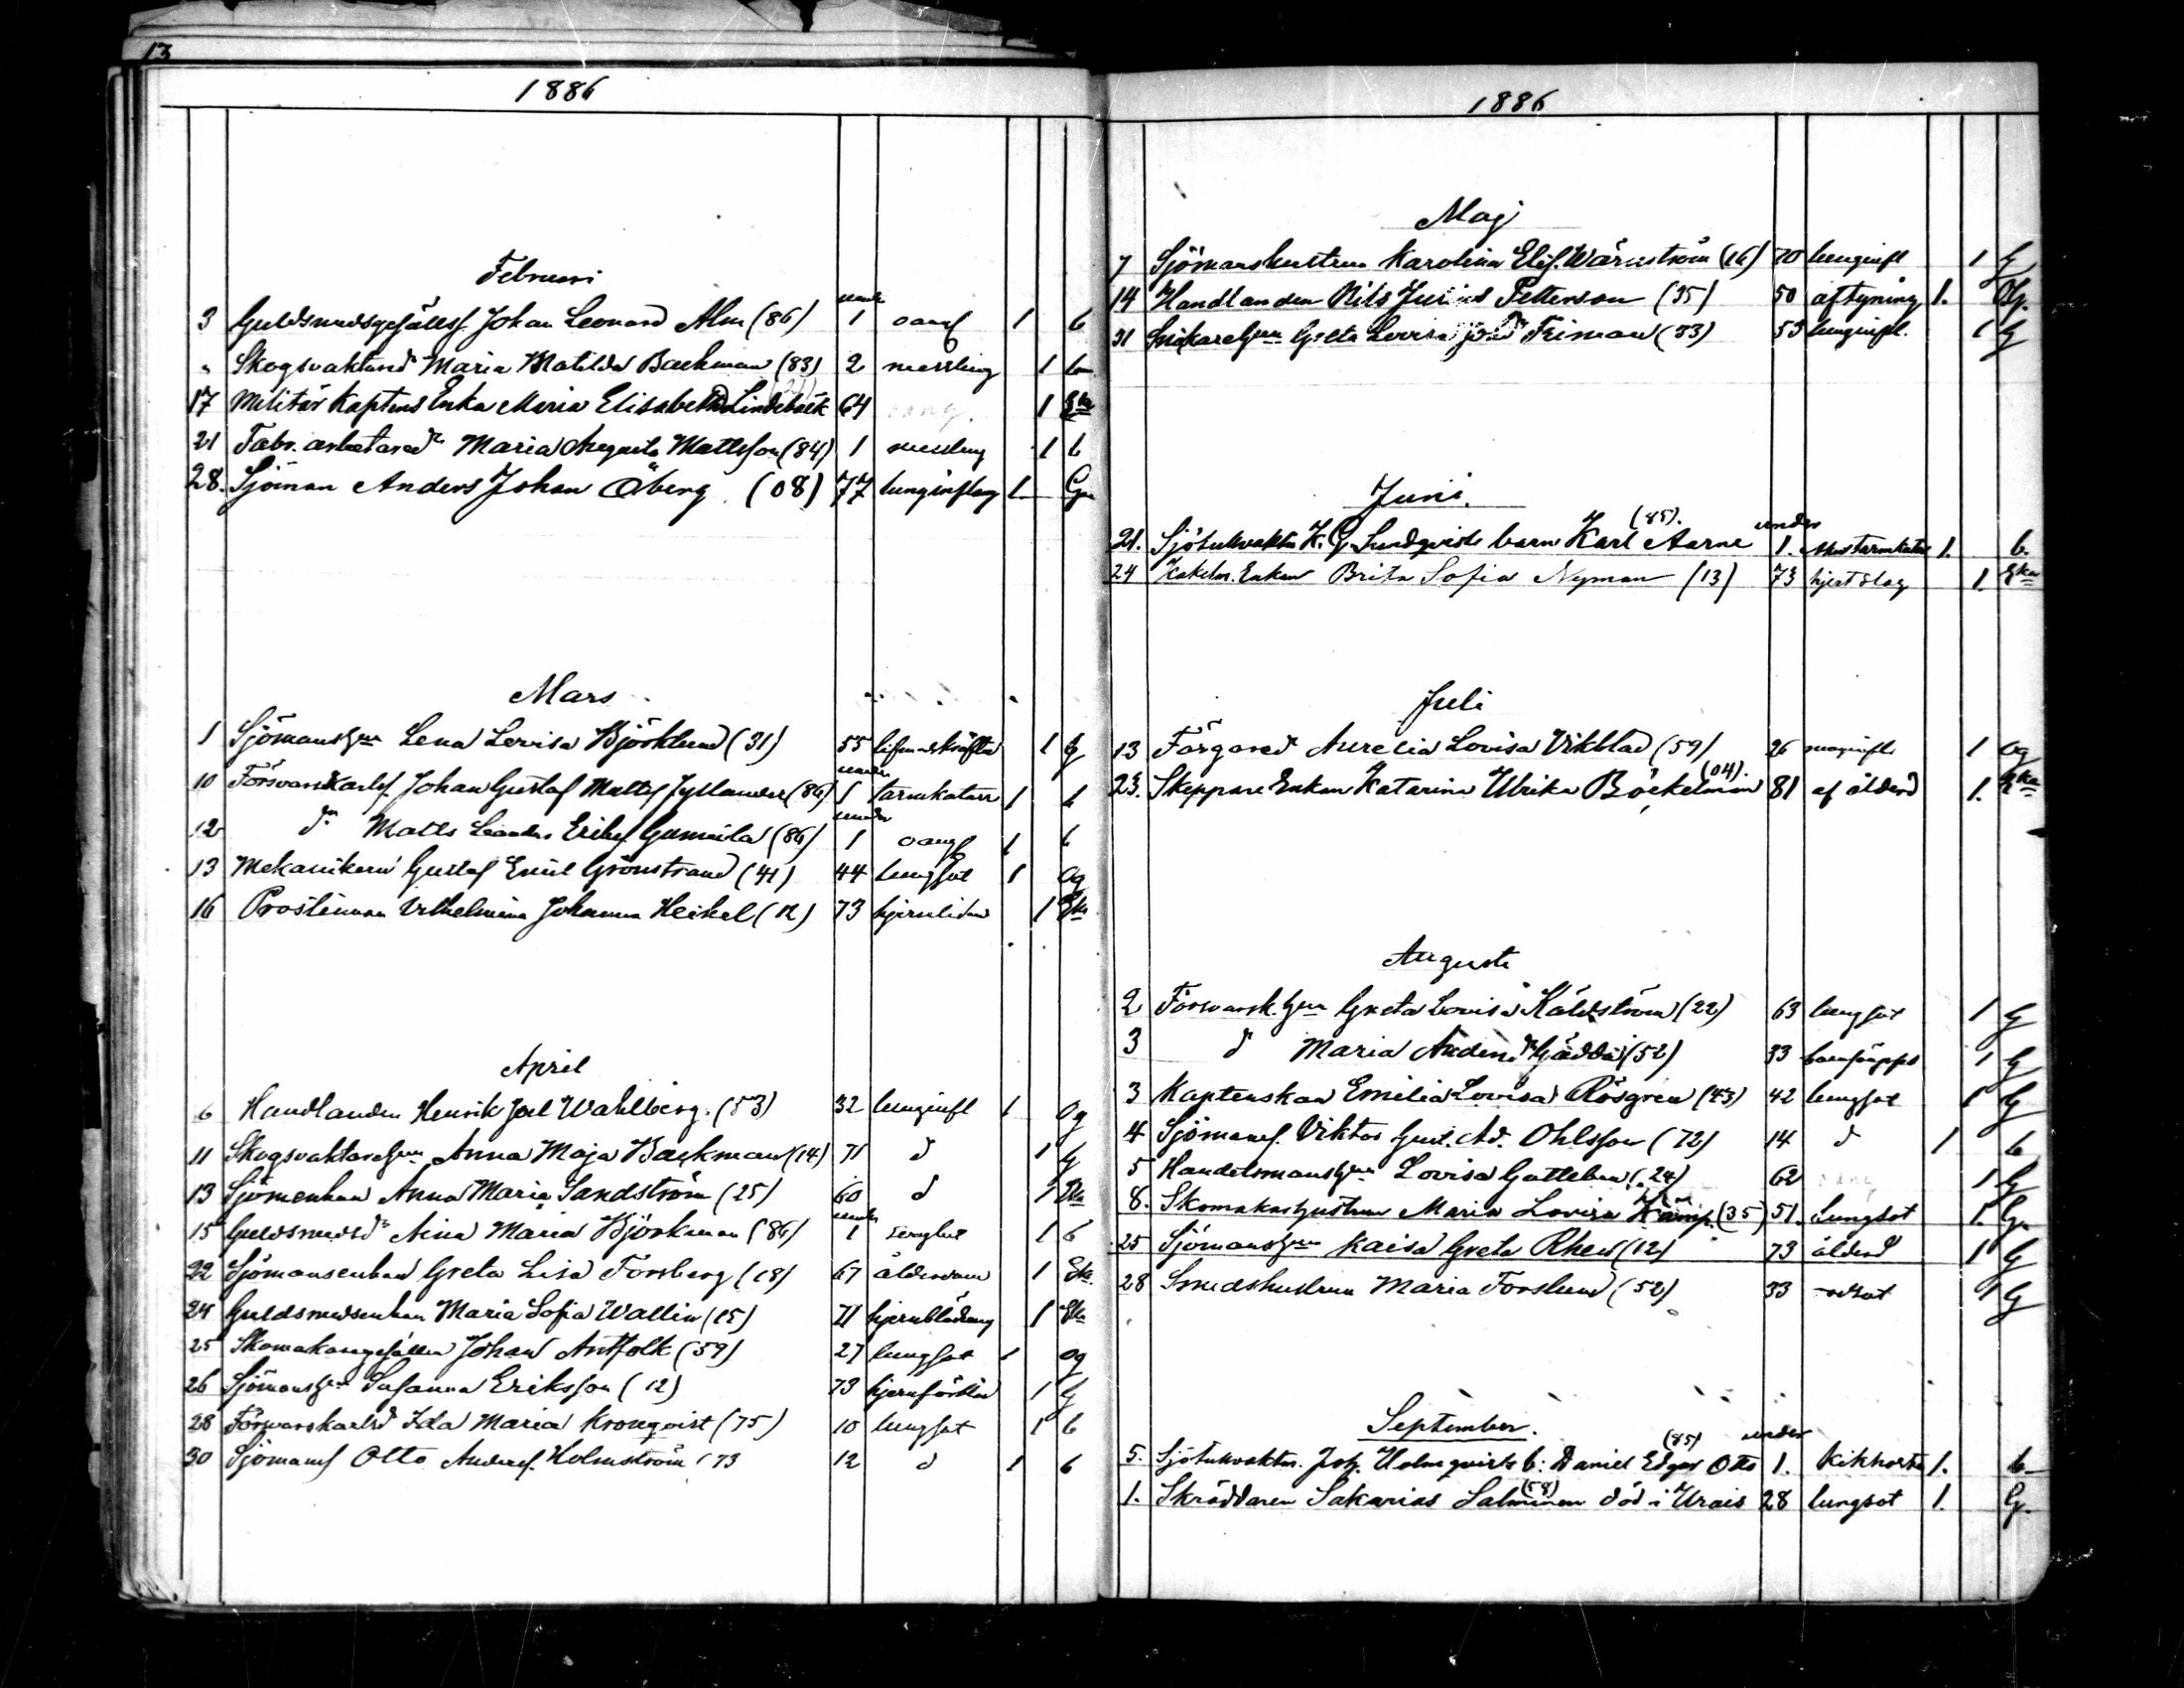 13
1886
Februari
3 Guldsmedsgesällss. Johan Leonard Alm (86) under 1 oangf 1 b
" Skogsvaktared Maria Matilda Backman (83) 2 messling 1 b
17 Militär Kaptens Enka Maria Elisabeth Lindebäck (21) 64 oang. 1 Eka
21 Fabr. arbetared Maria Augusta Mattsson (84) 1 messling 1 b
28. Sjöman Anders Johan Öberg. (08) 77 lunginflam 1 G
Mars
1 Sjömanshun Lena Lovisa Björklund (31) 55 1 g
10 Försvarskarls Johan Gustaf Matts (86) under 1 tarmkatarr 1 b
12 do Matts Leander Eriks Gammila (86) under 1 oangf 1 b
13 Mekanikern Gustaf Emil Grönstrand (41) 44 lungsot 1 og
16 Prostinnan Vilhelmina Johanna Heikel (12) 73 hjernlidan 1 Eka
April
6 Handlanden Henrik Joel Wahlberg. (53) 32 lunginfl 1 og
11 Skogsvaktarehun Anna Maja Backman (14) 71 d 1 g
13 Sjömenkan Anna Maria Sandström (25) 60 d 1 Eka
15 Guldsmedsd Aina Maria Björkman (86) under 1 1 b
22 Sjömansenkan Greta Lisa Forsberg (18) 67 ålderdom 1 Ek.
24 Guldsmedsenkan Maria Sofia Wallin (15) 71 hjernblödning 1 Eka
25 Skomakaregesällen Johan Antfolk (59) 27 lungsot 1 og
26 Sjömanshun Susanna Eriksson (12) 73 1 g
28 Försvarskarlsd Ida Maria Kronqvist (75) 10 lungsot 1 b
30 Sjömans Otto Anders. Holmström (73 12 d 1 b
1886
Maj
7 Sjömanshustrun Karolina Elis. Wärnström (16) 70 lunginfl 1 g
14 Handlanden Nils Julius Petterson (35) 50 aftyning 1. Og.
31 Snikarehun Greta Lovisa Friman (33) 53 lunginfl. 1 g
Juni.
21. Sjötullvaktm K. G. Lundqvists barn Karl Aarne (85). under 1. 1. b.
24 Kakelm. Enkan Brita Sofia Nyman (13) 73 hjertslag 1. Eka
Juli
13 Färgared Aurelia Lovisa Vikblad (59) 26 maginfl 1 og
23. Skeppare Enkan Katarina Ulrika Böckelman (04). 81 af ålderd 1. Eka
Augusti
2 Försvarsk. hun Greta Lovisa Källström (22) 63 lungsot 1 g
3 d Maria Andersd Gädda (52) 33 1 g
3 Kaptenskan Emilia Lovisa Rösgren (43) 42 lungsot 1 g
4 Sjömans. Viktor Gust. Ad. Ohlsson (72) 14 d 1 b
5 Handelsmanshun Lovisa Gottleben (24) 62 oang 1 g
8. Skomakarhustrun Maria Lovisa Kämp. (35) 51. Lungsot 1. G.
25 Sjömanshun Kaisa Greta Rhen (12) 73 ålderd 1 g
28 Smedshustrun Maria Forslund (52) 33 rödsot 1 g
September.
5. Sjötullvaktm. Joh. Holmqvists b: Daniel Edgar Otto (85) under 1. Kikhosta 1. b
1. Skräddaren Sakarias Salminen (58) död i Urais 28 lungsot 1. G.